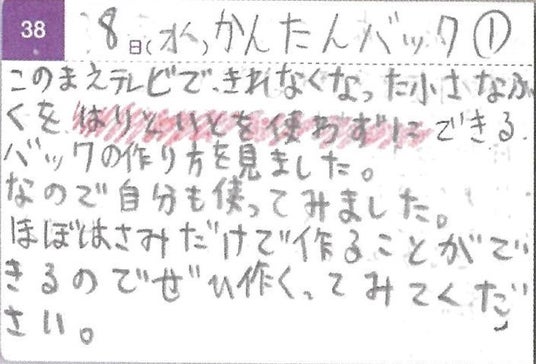 38
8日(水)かんたんバック①
このまえテレビで、きれなくなった小さなふ
くをはりといとを使わずにできる
バックの作り方を見ました。
なので自分も使ってみました。
ほぼはさみだけで作ることがで
きるのでぜひ作くってみてくだ
さい。